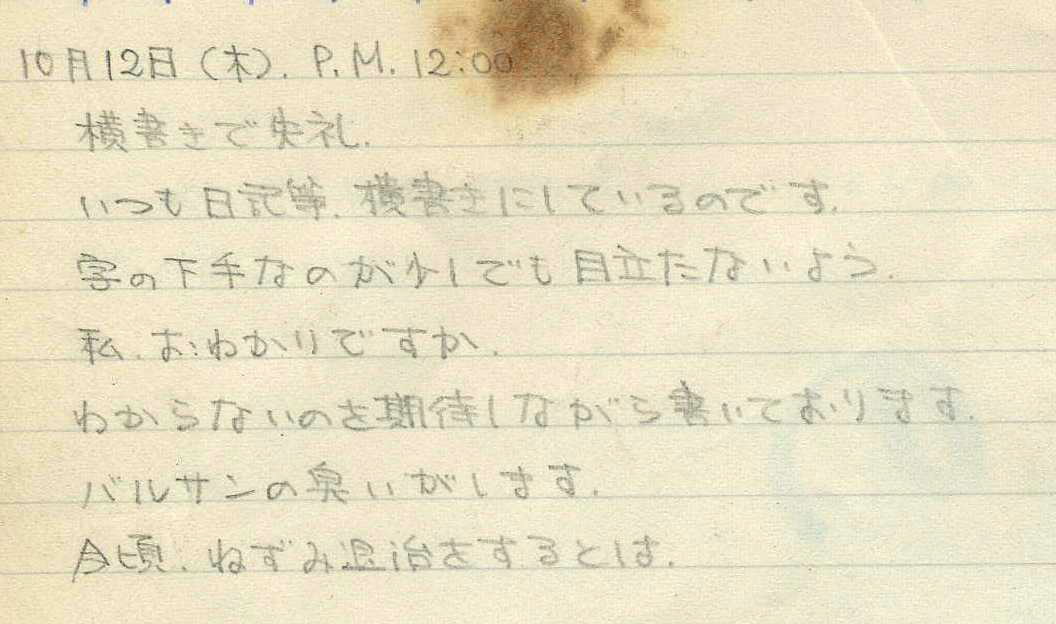 10月12日（木）. P.M. 12:00
横書きで失礼.
いつも日記等.横書きにしているのです.
字の下手なのが少しでも目立たないよう.
私.おわかりですか.
わからないのを期待しながら書いております.
バルサンの臭いがします.
今頃.ねずみ退治をするとは.